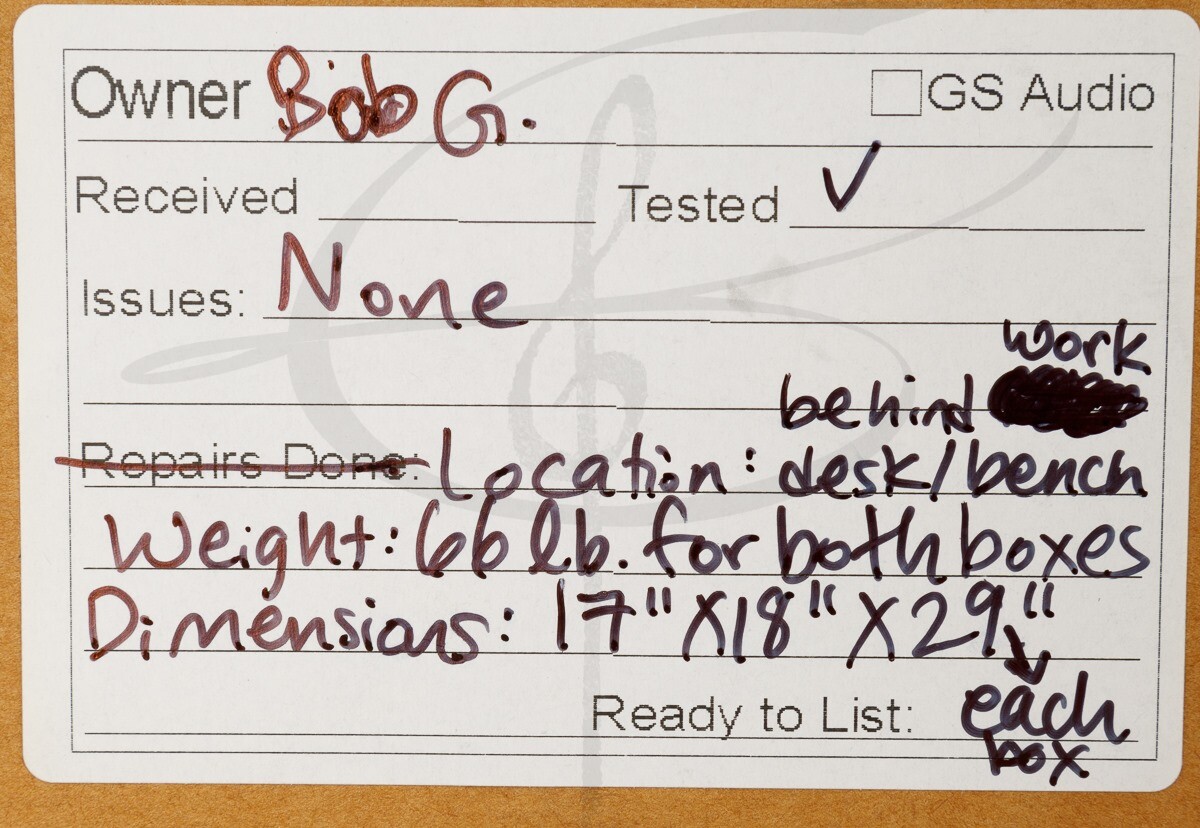 Owner Bob G. GS Audio
Received Tested ✓
Issues: None
work
behind
Repairs Done: Location: desk/bench
Weight: 66 lb. for both boxes
Dimensions: 17" X 18" X 29"
Ready to List: each
box